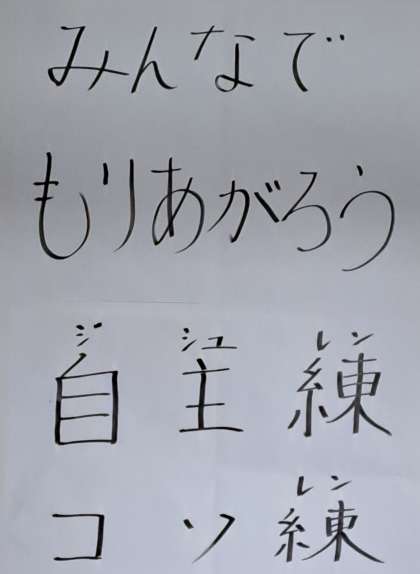 みんなで
もりあがろう
ジ シュ レン
自主練
レン
コソ練